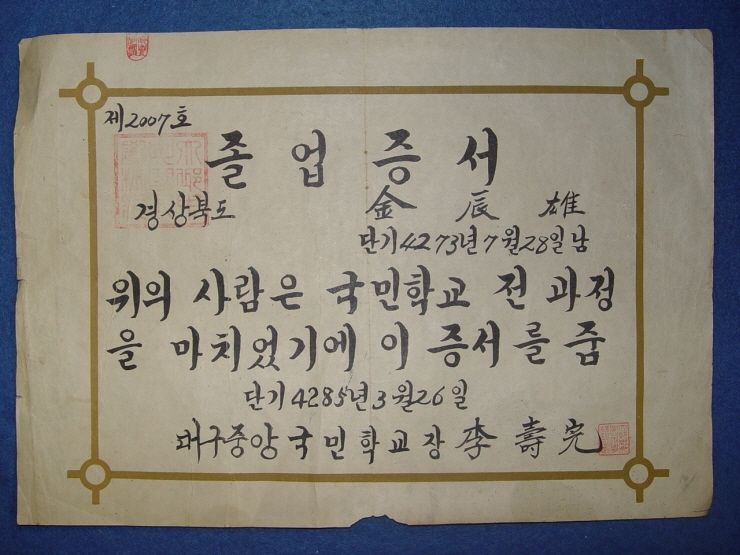 제2007호
졸업증서
경상북도 金辰雄
단기4273년7월28일남
위의 사람은 국민학교 전 과정
을 마치었기에 이 증서를 줌
단기4285년3월26일
대구중앙국민학교장 李壽完